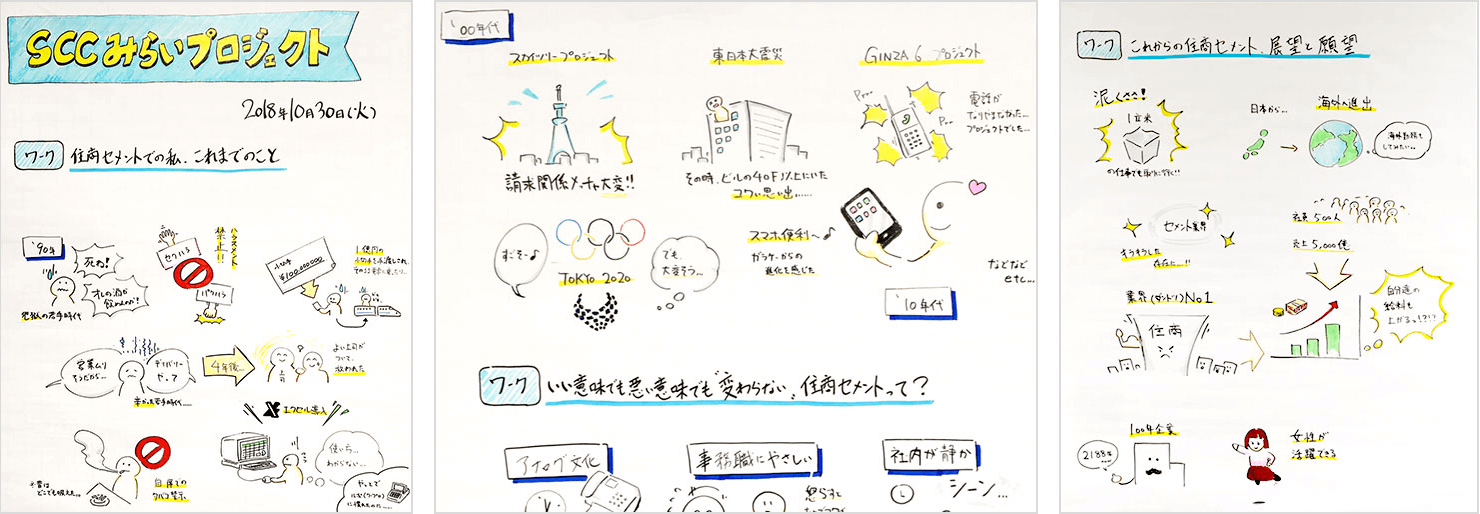 SCCみらいプロジェクト
2018年10月30日(火)
ワーク 住商セメントでの私、これまでのこと
'90年
死ね!
オレの酒が
飲めんのか!
セクハラ
パワハラ
ハラスメント
禁止!!
小切手
¥100,000,000
1億円の
営業ムリ
そうだから…
デリバリー
やって
辛かった若手時代……
4年後…
上司
よい上司が
ついて、
救われた
エクセル導入
使い方…
わからない…
自席での
タバコ禁止
※昔は
どこでも吸えた…
やっとで
に慣れたのに……
'00年代
スカイツリープロジェクト
請求関係メッチャ大変!!
東日本大震災
その時、ビルの40F以上にいた
コワい思い出……
GINZA 6 プロジェクト
Prrr…
Prr…
電話が
なりやまなかった…
プロジェクトでした…
すごそ〜♪
TOKYO 2020
でも、
大変そう…
スマホ便利〜♪
ガラケーからの
進化を感じた
などなど
etc…
'10年代
ワーク いい意味でも悪い意味でも"変わらない"住商セメントって?
アナログ文化
事務職にやさしい
社内が静か
シーン…
怒らず
ワーク これからの住商セメント、展望と願望
泥くさく!
1立米
の仕事でも取りに行く!!
日本から…
海外へ進出
海外勤務も
してみたい…
セメント業界
キラキラした
存在に…!!
社員500人
売上5,000億
業界(ダントツ)No1
住商
自分達の
給料も
上がるっ!?!?
100年企業
2188年
女性が
活躍できる